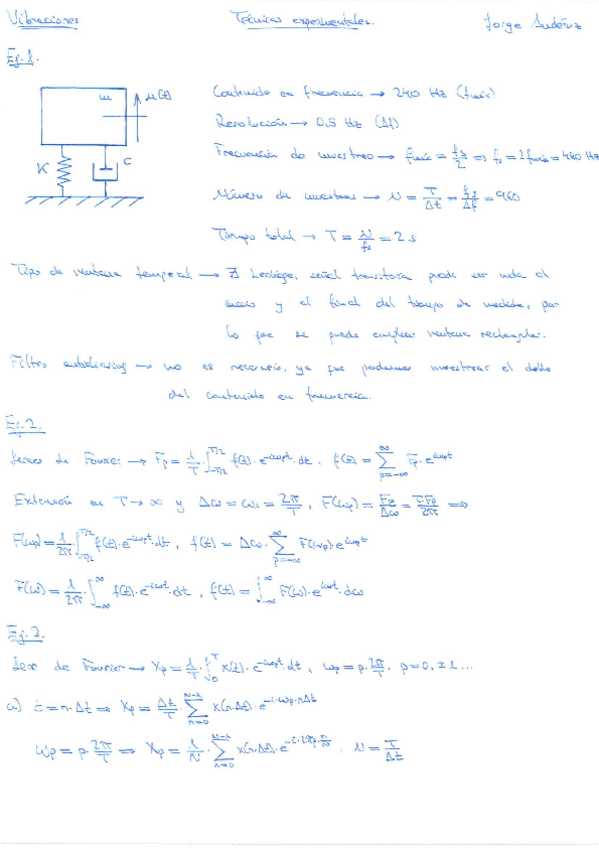 Vibraciones Técnicas experimentales. Jorge
Ej. 1.
m u(t)
K C
Contenido en frecuencia → 240 Hz (fmáx)
Resolución → 0.5 Hz (Δf)
Frecuencia de muestreo → fmáx = fs/2 ⇒ fs = 2fmáx = 480 Hz
Número de muestras → N = T/Δt = fs/Δf = 960
Tiempo total → T = N/fs = 2 s
Tipo de ventana temporal → ∄ Leakage, señal transitoria puede ser nula al
inicio y al final del tiempo de medida, por
lo que se puede emplear ventana rectangular.
Filtro antialiasing → no es necesario, ya que podemos muestrear el doble
del contenido en frecuencia.
Ej. 2.
Series de Fourier → Fp = 1/T · ∫_{-T/2}^{T/2} f(t) · e^{-iωpt} · dt, f(t) = Σ_{p=-∞}^{∞} Fp · e^{iωpt}
Extensión en T → ∞ y Δω = ω1 = 2π/T, F(ωp) = Fp/Δω = T·Fp/2π ⇒
F(ωp) = 1/2π · ∫_{-T/2}^{T/2} f(t) · e^{-iωpt} · dt, f(t) = Δω · Σ_{p=-∞}^{∞} F(ωp) · e^{iωpt}
F(ω) = 1/2π · ∫_{-∞}^{∞} f(t) · e^{-iωt} · dt, f(t) = ∫_{-∞}^{∞} F(ω) · e^{iωt} · dω
Ej. 3.
Serie de Fourier → Xp = 1/T · ∫_0^T x(t) · e^{-iωpt} dt, ωp = p · 2π/T, p = 0, ±1 ...
a) t = n·Δt ⇒ Xp = Δt/T · Σ_{n=0}^{N-1} x(n·Δt) · e^{-i·ωp·nΔt}
ωp = p · 2π/T ⇒ Xp = 1/N · Σ_{n=0}^{N-1} x(n·Δt) · e^{-i·2πp·n/N}, N = T/Δt